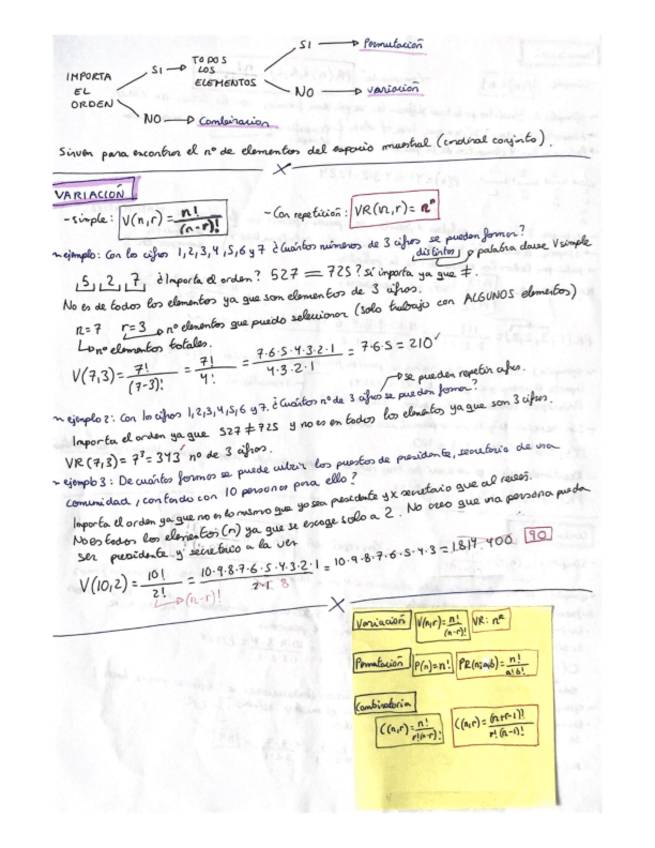 IMPORTA EL ORDEN
SI → TODOS LOS ELEMENTOS
SI → Permutación
NO → Variación
NO → Combinación
Sirven para encontrar el nº de elementos del espacio muestral (cardinal conjunto).
VARIACIÓN
- simple: V(n,r) = n! / (n-r)!
- Con repetición: VR(n,r) = nʳ
~ ejemplo: Con las cifras 1,2,3,4,5,6 y 7 ¿Cuántos números de 3 cifras se pueden formar?
distintos → palabra clave V simple
5, 2, 7, ¿Importa el orden? 527 = 725? Si importa ya que ≠.
No es de todos los elementos ya que son elementos de 3 cifras.
n=7 r=3 → nº elementos que puedo seleccionar (solo trabajo con ALGUNOS elementos)
↳ nº elementos totales.
V(7,3) = 7! / (7-3)! = 7! / 4! = 7·6·5·4·3·2·1 / 4·3·2·1 = 7·6·5 = 210
→ se pueden repetir cifras.
~ ejemplo 2: Con las cifras 1,2,3,4,5,6 y 7. ¿Cuántos nº de 3 cifras se pueden formar?
Importa el orden ya que 527 ≠ 725 y no es en todos los elementos ya que son 3 cifras.
VR(7,3) = 7³ = 343 nº de 3 cifras.
~ ejemplo 3: De cuántas formas se puede cubrir los puestos de presidente, secretario de una
comunidad, contando con 10 personas para ello?
Importa el orden ya que no es lo mismo que yo sea presidente y x secretario que al revés.
No es todos los elementos (n) ya que se escoge solo a 2. No creo que una persona pueda
ser presidente y secretrico a la vez
V(10,2) = 10! / 2! = 10·9·8·7·6·5·4·3·2·1 / 2·1 = 10·9·8·7·6·5·4·3 = 1.814.400 90
→ (n-r)! 8
Variación V(n,r) = n! / (n-r)! VR: nʳ
Permutación P(n)=n! PR(n;a,b) = n! / a!b!
Combinatoria
C(n,r) = n! / r!(n-r)! C(n,r) = (n+r-1)! / r!(n-1)!